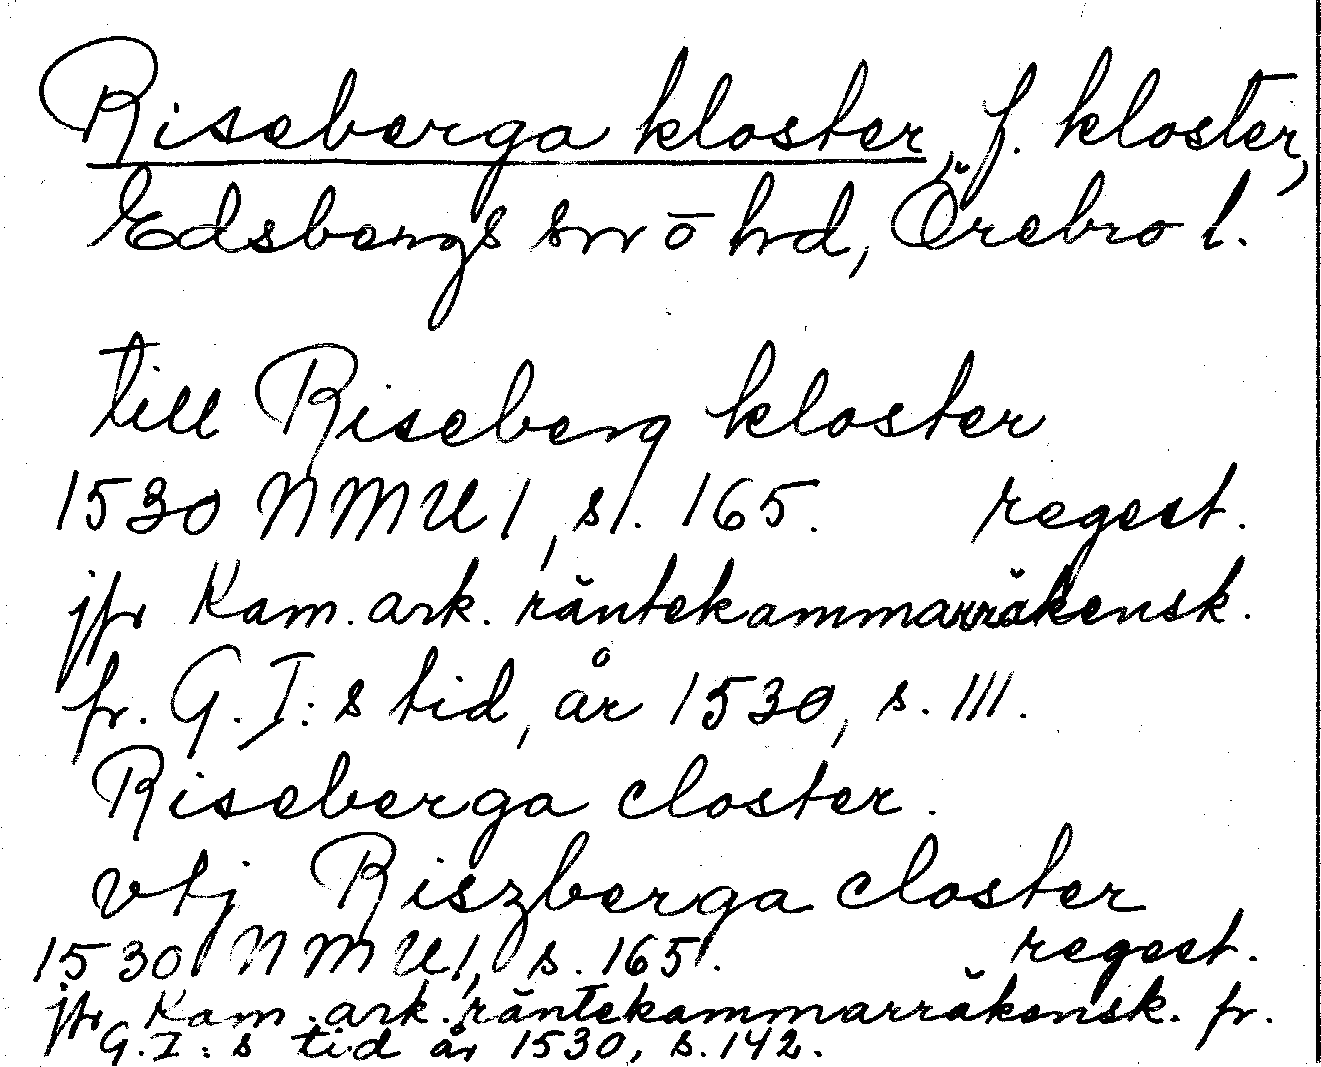 Riseberga kloster, f. kloster,
Edsbergs sn o hd, Örebro l.
till Riseberg kloster
1530 NMU 1, s. 165. regest.
jfr Kam. ark. räntekammarräkensk.
fr. G. I:s tid, år 1530, s. 111.
Riseberga closter.
vtj Riszberga closter
1530 NMU 1, s. 165. regest.
jfr Kam. ark. räntekammarräkensk. fr.
G. I:s tid år 1530, s. 142.